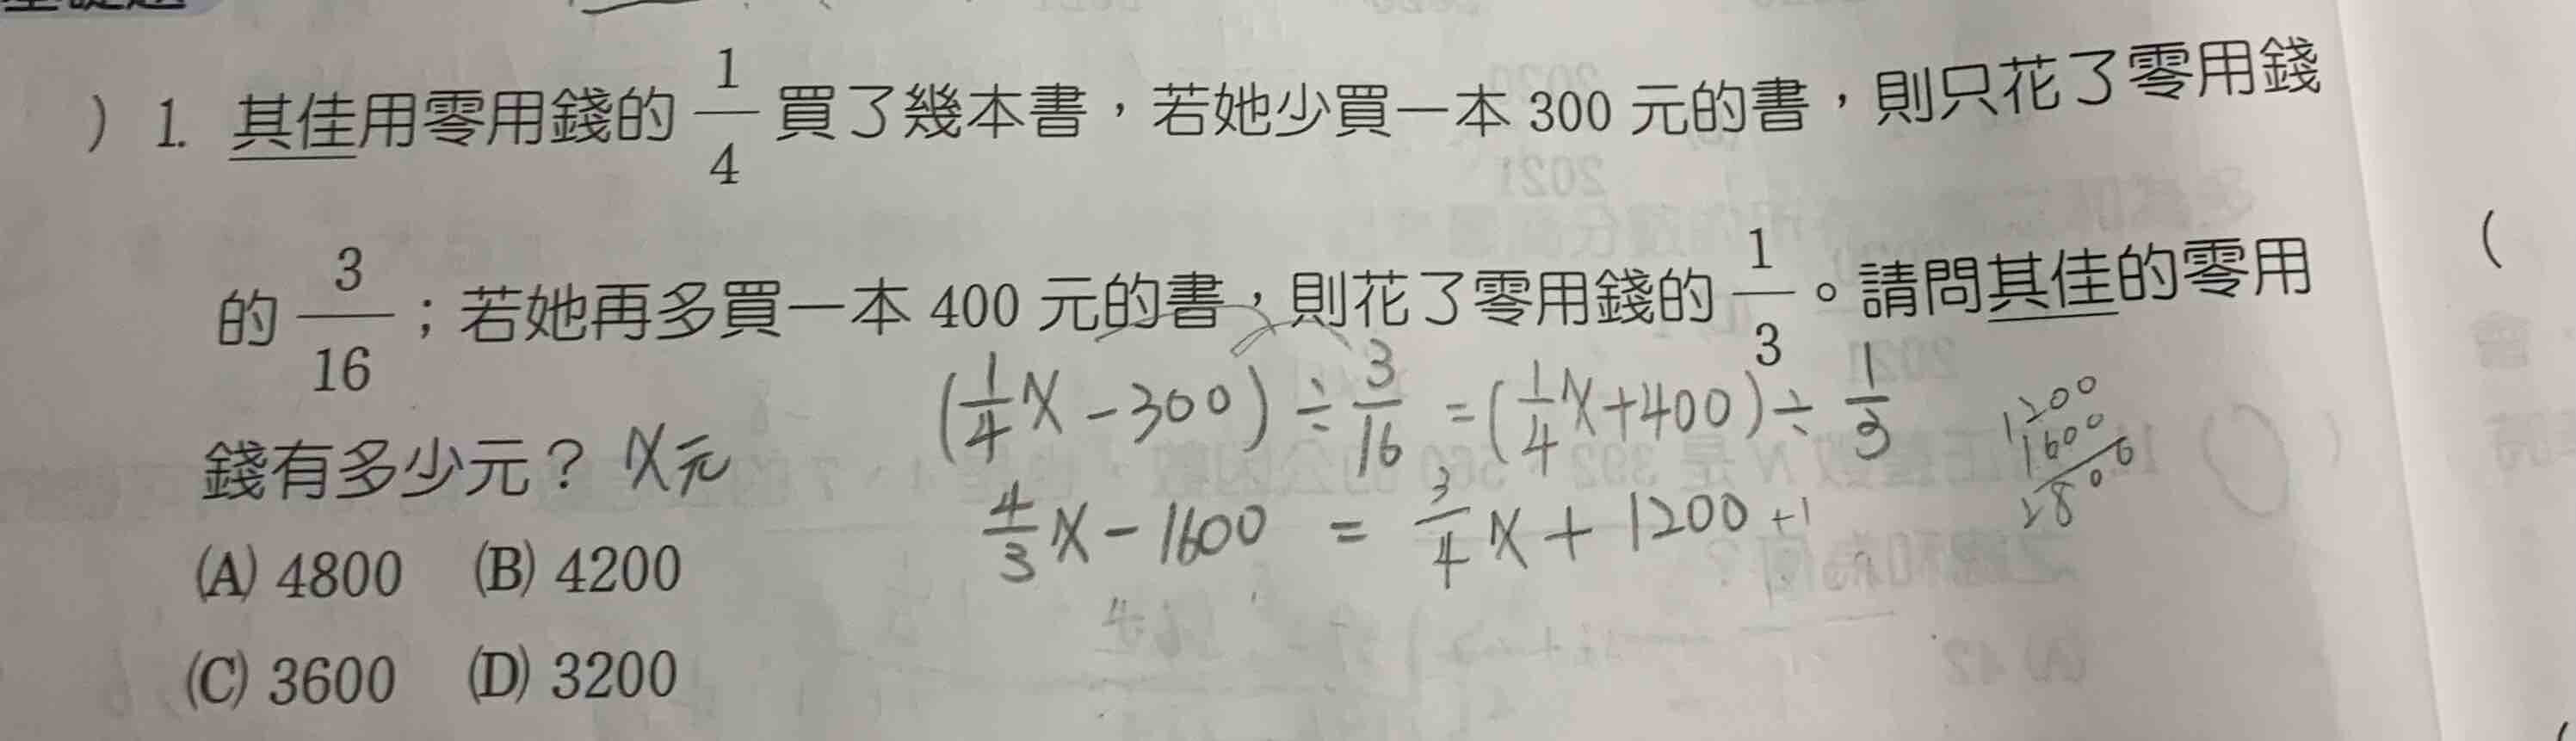 ) 1. 其佳用零用錢的 1/4 買了幾本書，若她少買一本 300 元的書，則只花了零用錢
的 3/16；若她再多買一本 400 元的書，則花了零用錢的 1/3。請問其佳的零用
錢有多少元？ X元
(1/4 X - 300) ÷ 3/16 = (1/4 X + 400) ÷ 1/3
4/3 X - 1600 = 3/4 X + 1200 +1
1200
1600
2800
(A) 4800 (B) 4200
(C) 3600 (D) 3200